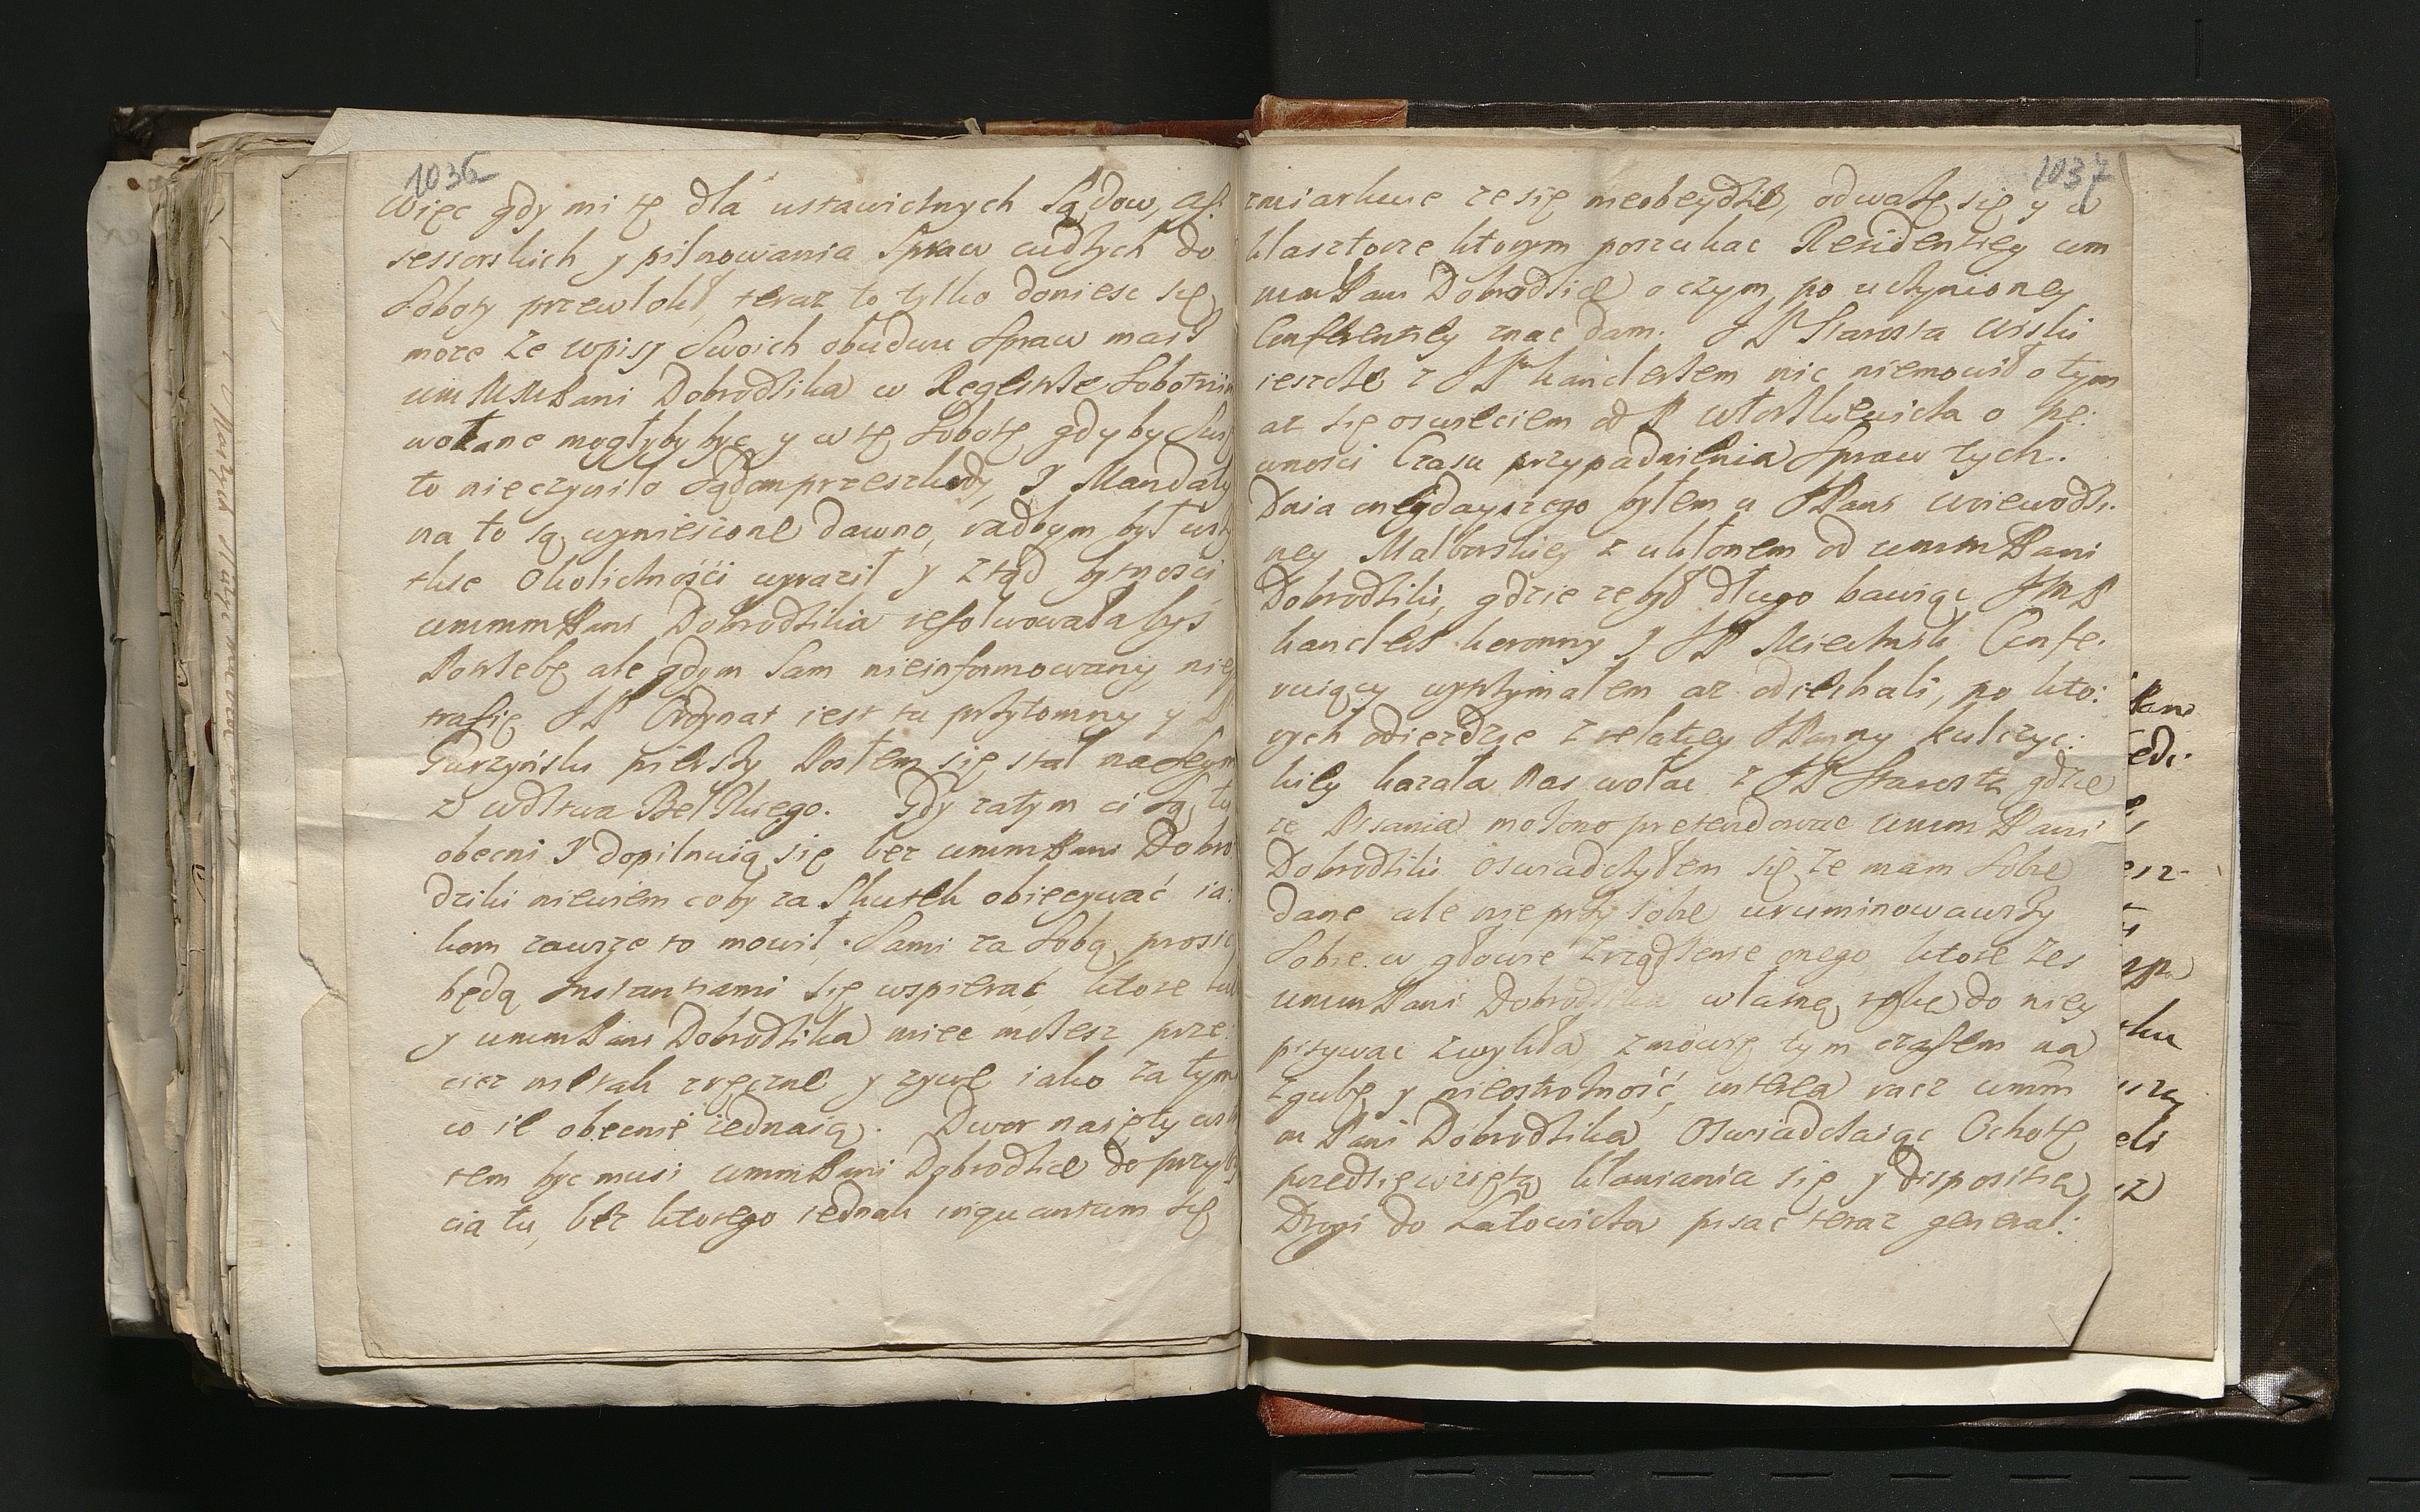 1036
Więc gdy mi tę dla ustawicznych Sądow, as:
sessorskich y pilnowania Spraw cudzych do
Soboty przewlokł, teraz to tylko doniesc się
moze ze wpisy Swoich obudwu Spraw masz
Dobrodzika w Regestrze Sobotnim
wołane mogłyby byc y w tę Sobotę gdyby
to nieczyniło Sądom przeszkody, Y Mandaty
na to są wyniesione dawno, radbym był
okolicznosci wyraził y ztąd bytnosci
wmmm Pani Dobrodzika resolwowałabys
Potrzebę ale gdym Sam nieinformowany, nie
trafię JP Ordynat iest tu przytomny y P
Gurzyński pierszy Posłem się stał na Seym
z wdztwa Bełskiego. Gdy zatym ci są tu
obecni Y dopilnuią się bez wmm Pani Dobro
dziki niewiem coby za Skutek obiecywać ia:
kom zawsze to mowił. Sami za Sobą prosić
będą Instantiami się wspierać, ktore
y wmm Pani Dobrodzika miec mozesz prze:
ciez niétak zręczne y zywe iako za tym
co ie obecnie iednaią. Dwor naięty
tem byc musi wmm Pani Dobrodzice do przyby
cia tu, bez ktorego iednak inquantum się
1037
zmiarkuie ze się nieobeydzie, odwazę się y w
klasztorze ktorym poszukac Residentiey wm
mm Pani Dobrodzice o czym po uczynioney
Conferentiey znac dam. JP Starosta Wiski
ieszcze z JP Kanclerzem nic niemowił o tym
az się oswieciem od P o pe:
wnosci Czasu przypadnienia Spraw tych.
Dnia onegdayszego byłem u JPani Woiewodzi:
ney Malborskiey z ukłonem od wmmm Pani
Dobrodziki, gdzie ze był długo bawiąc JMP
Kanclerz Koronny Y JP Miecznik Confe:
ruiący wytrzymałem az odiechali, po kto:
rych odiezdzie z relatiey JPanny Kulczyc:
kiey kazała nas wołac z JP Starostą gdzie
ze Pisania mozno pretendowac wmm Pani
Dobrodziki oswiadczyłem się ze mam Sobie
dane ale nie przy sobie uruminowawszy
Sobie w głowie zrządzenie onego ktore zes
wmm Pani Dobrodzika własną ręką do niey
pisywac zwykła zmowię tym czasem na
zgubę y nieostrozność, wtéla racz wmm
m Pani Dobrodzika Oswiadczaiąc Ochotę
przedsięwzięta kłaniania się y dispositią
Drogi do Łatowicza pisac teraz general: